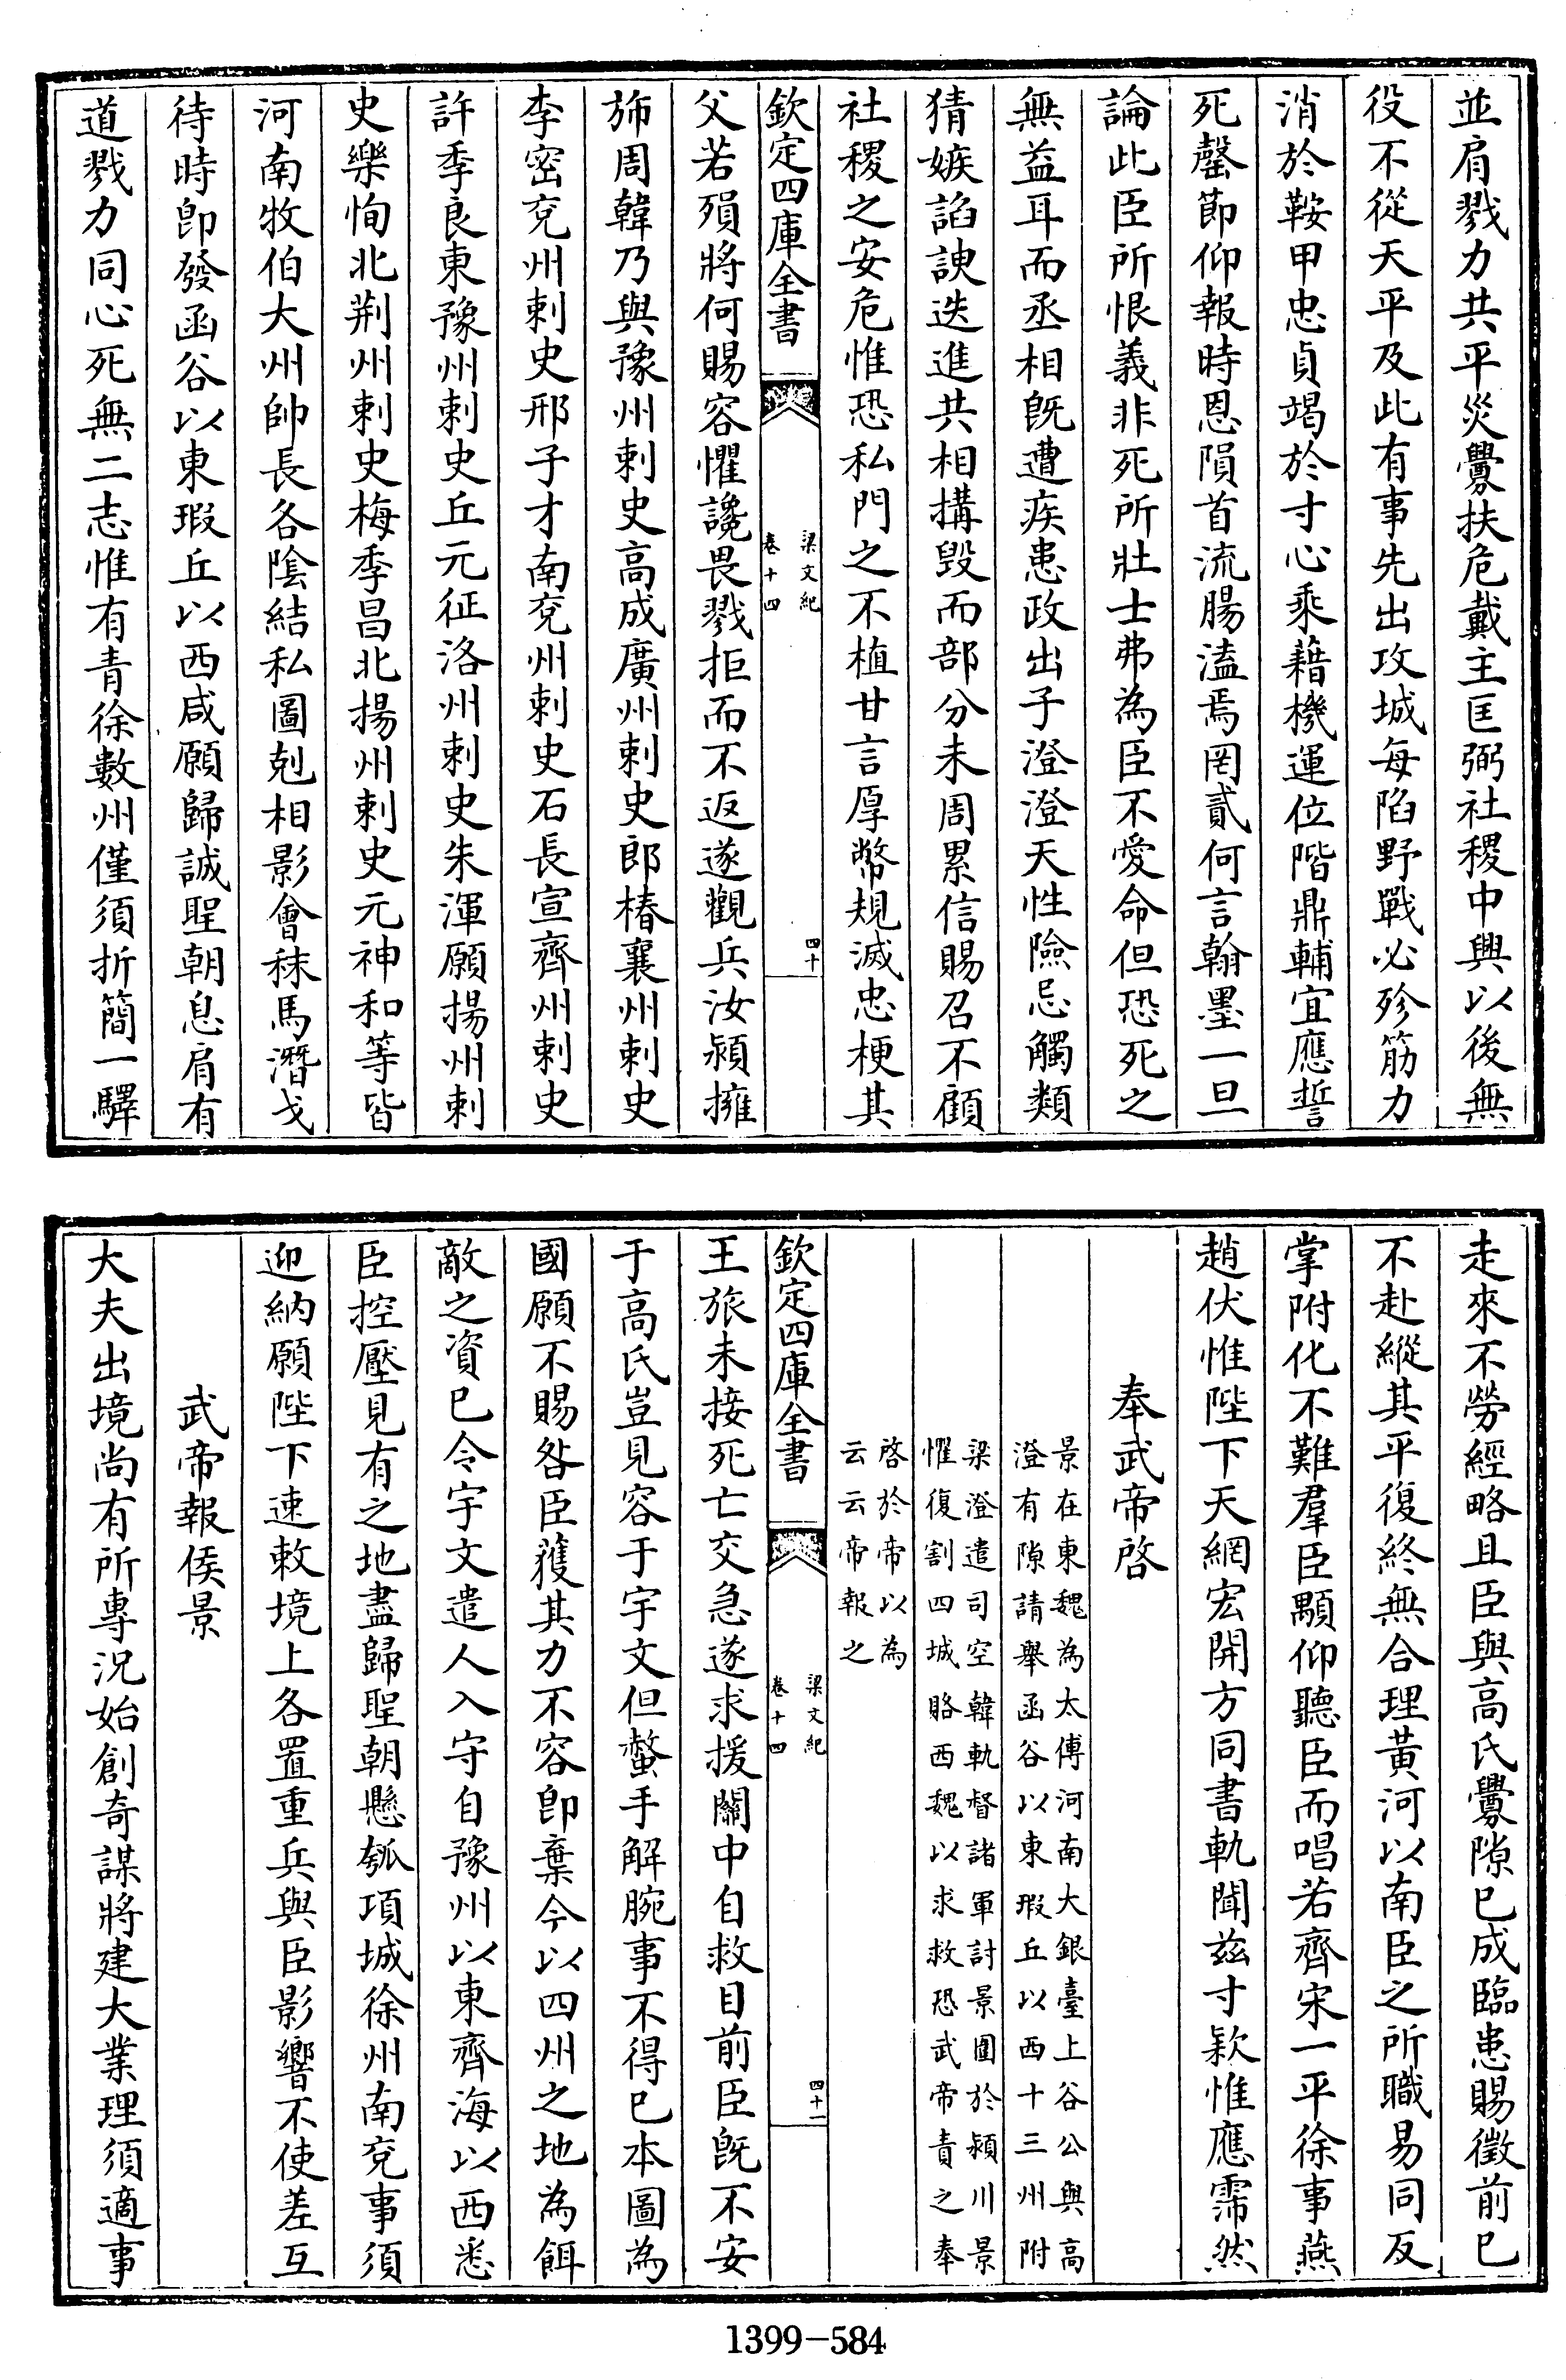 並肩戮力共平災釁扶危戴主匡弼社稷中興以後無
役不從天平及此有事先出攻城每陷野戰必殄筋力
消於鞍甲忠貞竭於寸心乘藉機運位階鼎輔宜應誓
死罄節仰報時恩隕首流腸溘焉罔貳何言翰墨一旦
論此臣所恨義非死所壯士弗為臣不愛命但恐死之
無益耳而丞相旣遭疾患政出子澄澄天性險忌觸類
猜嫉諂諛迭進共相搆毀而部分未周累信賜召不顧
社稷之安危惟恐私門之不植甘言厚幣規滅忠梗其
欽定四庫全書
梁文紀
卷十四
四十
父若殞將何賜容懼讒畏戮拒而不返遂觀兵汝潁擁
斾周韓乃與豫州刺史高成廣州刺史郎椿襄州刺史
李密兖州刺史邢子才南兖州刺史石長宣齊州刺史
許季良東豫州刺史丘元征洛州刺史朱渾願揚州刺
史樂恂北荆州刺史梅季昌北揚州刺史元神和等皆
河南牧伯大州帥長各陰結私圖剋相影會秣馬潛戈
待時卽發函谷以東瑕丘以西咸願歸誠聖朝息肩有
道戮力同心死無二志惟有青徐數州僅須折簡一驛
走來不勞經略且臣與高氏釁隙已成臨患賜徵前已
不赴縱其平復終無合理黃河以南臣之所職易同反
掌附化不難羣臣顒仰聽臣而唱若齊宋一平徐事燕
趙伏惟陛下天網宏開方同書軌聞兹寸欵惟應霈然
奉武帝啓
景在東魏為太傅河南大銀臺上谷公與高
澄有隙請舉函谷以東瑕丘以西十三州附
梁澄遣司空韓軌督諸軍討景圍於潁川景
懼復割四城賂西魏以求救恐武帝責之奉
啓於帝以為
云云帝報之
欽定四庫全書
梁文紀
卷十四
四十一
王旅未接死亡交急遂求援關中自救目前臣旣不安
于高氏豈見容于宇文但螫手解腕事不得已本圖為
國願不賜咎臣獲其力不容卽棄今以四州之地為餌
敵之資已令宇文遣人入守自豫州以東齊海以西悉
臣控壓見有之地盡歸聖朝懸瓠項城徐州南兖事須
迎納願陛下速敕境上各置重兵與臣影響不使差互
武帝報侯景
大夫出境尚有所專況始創奇謀將建大業理須適事
1399-584